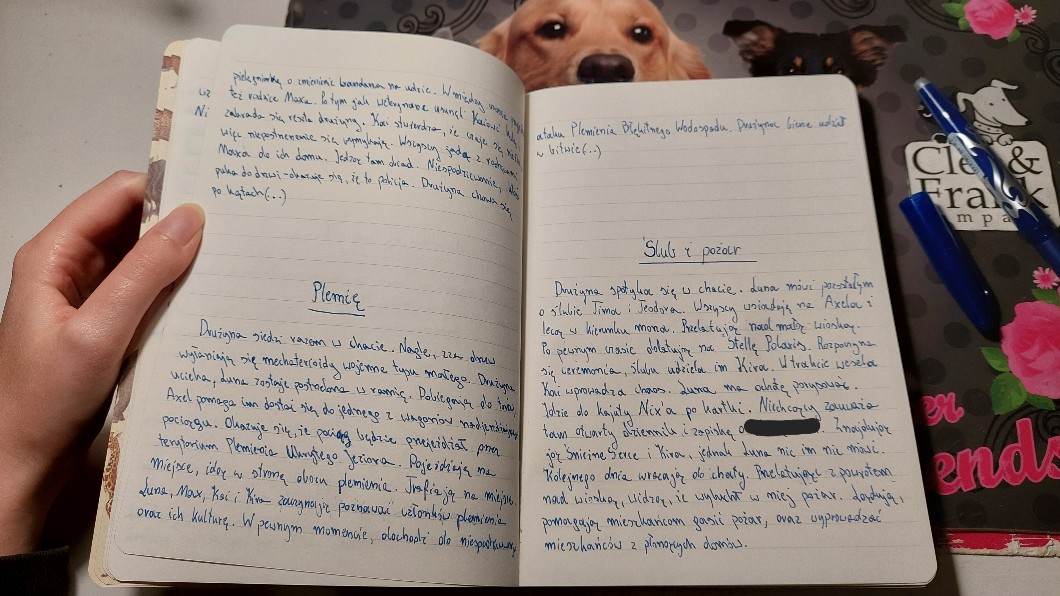 pielęgniarkę o zmienienie bandana na udzie. W między
też rodzice Maxa. Po tym jak wetrynarze usunęli Kaiowi
zabrada się reszta drużyny. Kai stwierdza, że czuje się
więc niepostrzeżenie się wymykają. Wszyscy jadą z rodzicami
Maxa do ich domu. Jedzą tam obiad. Niespodziewanie,
puka do drzwi - okazuje się, że to policja. Drużyna chowa się
po kątach(..)
Plemię
Drużyna siedzi razem w chacie. Nagle, zza drzew
wyłaniają się mechateroidy wojenne typu małego. Drużyna
ucieka, Luna zostaje postrzelona w ramię. Dobiegają do torów
Axel pomaga im dostać się do jednego z wagonów nadjeżdżającego
pociągu. Okazuje się, że pociąg będzie przejeżdżał przez
terytorium Plemienia Ukrytego Jeziora. Dojeżdżają na
miejsce, idą w stronę obozu plemienia. Trafiają na miejsce.
Luna, Max, Kai i Kira zaczynają poznawać członków plemienia
oraz ich kulturę. W pewnym momencie, dochodzi do niespodziewanego
ataku Plemienia Błękitnego Wodospadu. Drużyna bierze udział
w bitwie(..)
Ślub i pożar
Drużyna spotyka się w chacie. Luna mówi pozostałym
o ślubie Tima i Jeodora. Wszyscy wsiadają na Axela i
lecą w kierunku morza. Przelatują nad małą wioską.
Po pewnym czasie dolatują na Stellę Polaris. Rozpoczyna
się ceremonia, ślubu udziela im Kira. W trakcie wesela
Kai wprowadza chaos. Luna ma ochotę porysować.
Idzie do kajuty Nixa po kartki. Niechcący zauważa
tam otwarty dziennik i zapiskę o . Znajdują
ją Śnieżne Serce i Kira, jednak Luna nic im nie mówi.
Kolejnego dnia wracają do chaty. Przelatując z powrotem
nad wioską, widzą, że wybuchł w niej pożar. Lądują,
pomagają mieszkańcom gasić pożar, oraz wyprowadzać
mieszkańców z płonących domów.
Cleo &
Frank